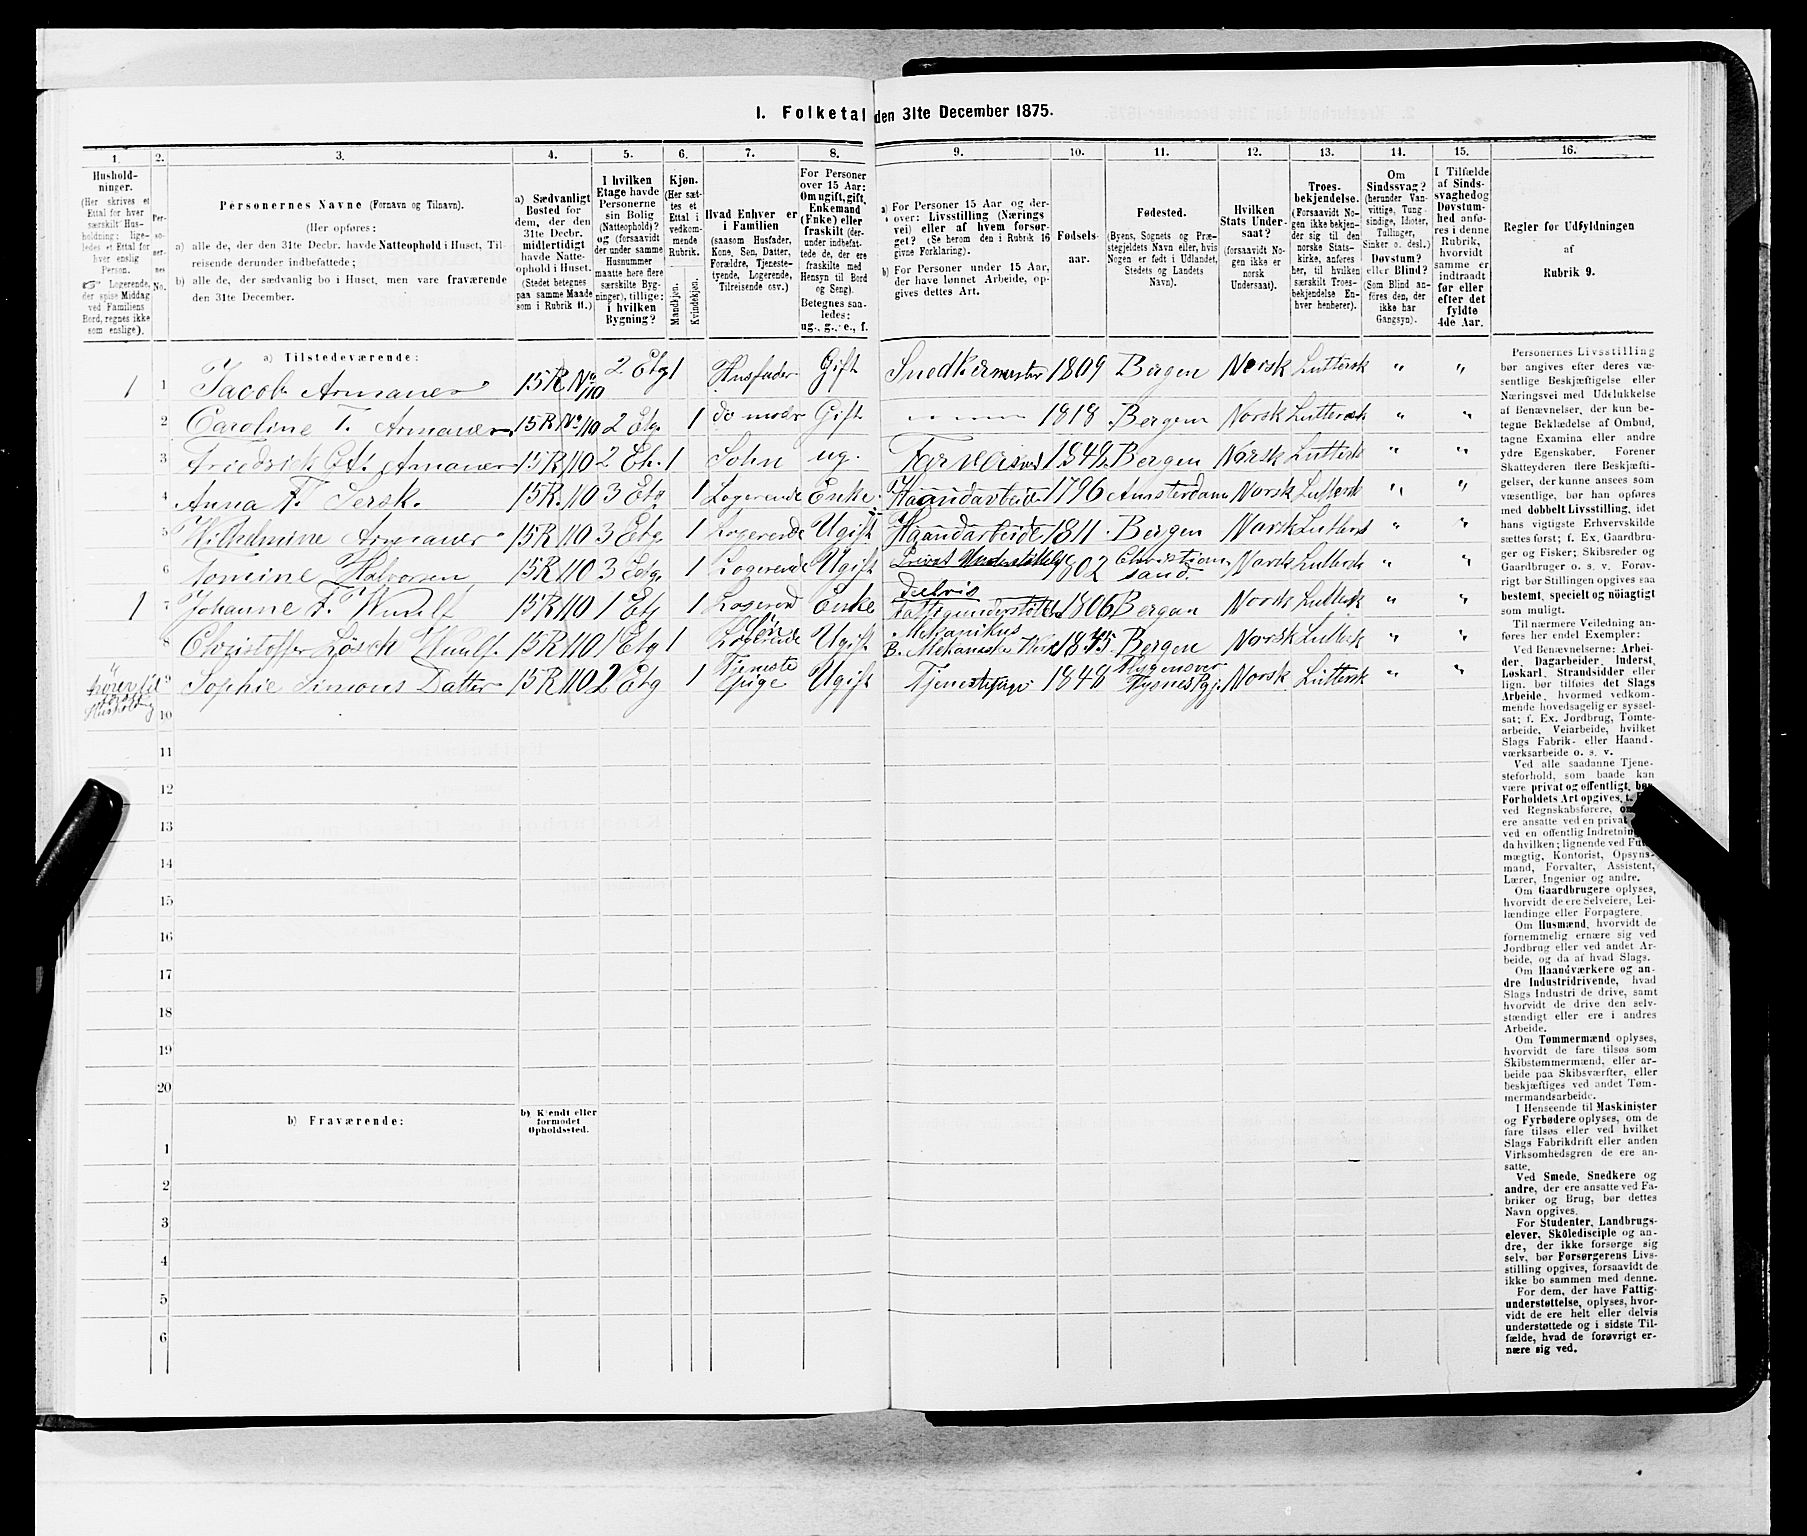 I. Folketal den 31te December 1875.
1. 2. 3. 4. 5. 6. 7. 8. 9. 10. 11. 12. 13. 14. 15. 16.
Hushold-
ninger.
(Her skrives et
Ettal for hver
særskilt Hus-
holdning; lige-
ledes et Ettal for
hver enslig
Person.
☞ Logerende,
der spise Middag
ved Familiens
Bord, regnes ikke
som enslige).
Per-
so-
ner-
nes
No.
Personernes Navne (Fornavn og Tilnavn).
(Her opføres:
a) alle de, der den 31te Decbr. havde Natteophold i Huset, Til-
reisende derunder indbefattede;
b) alle de, der sædvanlig bo i Huset, men vare fraværende
den 31te December.
a) Sædvanligt
Bosted for
dem, der den
31te Decbr.
midlertidigt
havde Natte-
ophold i Huset.
(Stedet betegnes
paa samme Maade
som i Rubrik 11.)
I hvilken
Etage havde
Personerne
sin Bolig
(Natteophold)?
og (forsaavidt
der under samme
Husnummer
maatte høre flere
særskilte Byg-
ninger), tillige:
i hvilken
Bygning?
Kjøn.
(Her sæt-
tes et
Ettal i
vedkom-
mende
Rubrik.
Mandkjøn.
Kvindekjøn.
Hvad Enhver er
i Familien
(saasom Husfader,
Kone, Søn, Datter,
Forældre, Tjeneste-
tyende, Logerende,
Tilreisende osv.)
For Personer
over 15 Aar:
Om ugift, gift,
Enkemand
(Enke) eller
fraskilt (der-
under indbefat-
tede de, der ere
fraskilte med
Hensyn til Bord
og Seng).
Betegnes saa-
ledes:
ug., g., e., f.
a) For Personer 15 Aar og der-
over: Livsstilling (Nærings
vei) eller af hvem forsør-
get? (Se herom den i Rubrik 16
givne Forklaring).
b) For Personer under 15 Aar,
der have lønnet Arbeide, op-
gives dettes Art.
Fødsels-
aar.
Fødested.
(Byens, Sognets og Præ-
stegjeldets Navn eller, hvis
Nogen er født i Udlandet,
Stedets og Landets
Navn).
Hvilken
Stats Under-
saat?
(forsaavidt No-
gen ikke er
norsk
Undersaat).
Troes-
bekjendelse.
(Forsaavidt No-
gen ikke bekjen-
der sig til den
norske Stats-
kirke, anføres
her, til hvilken
særskilt Troes-
bekjendelse En-
hver henhører).
Om
Sindssvag?
(herunder Van-
vittige, Tung-
sindige, Idioter,
Tullinger,
Sinker o. desl.)
Døvstum?
eller Blind?
(Som Blind an-
føres den, der
ikke har
Gangsyn).
I Tilfælde
af Sinds-
svaghed og
Døvstum-
hed anfø-
res i denne
Rubrik,
hvorvidt
samme er
indtraadt
før eller
efter det
fyldte
4de Aar.
Regler for Udfyldningen
af
Rubrik 9.
a) Tilstedeværende:
1 1 Jacob Armauer 15 R No 110 2 Etg 1 Husfader Gift Snedkermester 1809 Bergen Norsk Luttersk " "
2 Caroline T. Armauer 15 R No 110 2 Etg 1 do modr Gift 1818 Bergen Norsk Luttersk " "
3 Friedrick Armauer 15 R 110 2 Et. 1 Sohn ug. 1848 Bergen Norsk Luttersk " "
4 Anna F. Sersk. 15 R. 110 3 Etg 1 Logerende Enke Haandarbeide 1796 Amsterdam Norsk Luttersk " "
5 Wilhelmine Armauer 15 R 110 3 Etg 1 Logerende Ugift Haandarbeide 1811 Bergen Norsk Luttersk " "
6 Tomine Halvorsen 15 R 110 3 Etg 1 Logerende Ugift Privat 1802 Christian
sand. Norsk Luttersk " "
1 7 Johanne F. Wuulf 15 R 110 1 Etg 1 Logerend Enke Delvis
Fattigunderstøttet 1806 Bergen Norsk Luttersk " "
8 Christoffer Lösch Wuulf. 15 R 110 1 Etg 1 Logerende
Sön Ugift Mekanikus
B. Mekaniske Værk 1845 Bergen Norsk Luttersk " "
hører til
første
Husholdng 9 Sophie Simons Datter 15 R 110 2 Etg 1 Tjeneste
pige Ugift Tjenestepige 1848 Tysnes Pgj. Norsk Luttersk " "
10
11
12
13
14
15
16
17
18
19
20
b) Fraværende:
b) Kjendt eller
formodet
Opholdssted.
1
2
3
4
5
6
Personernes Livsstilling
bør angives efter deres væ-
sentlige Beskjæftigelse eller
Næringsvei med Udelukkelse
af Benævnelser, der kun be-
tegne Beklædelse af Ombud,
tagne Examina eller andre
ydre Egenskaber. Forener
Skatteyderen flere Beskjæfti-
gelser, der kunne ansees som
væsentlige, bør han opføres
med dobbelt Livsstilling, idet
hans vigtigste Erhvervskilde
sættes først; f. Ex. Gaardbru-
ger og Fisker; Skibsreder og
Gaardbruger o. s. v. Forøv-
rigt bør Stillingen opgives saa
bestemt, specielt og nøiagtigt
som muligt.
Til nærmere Veiledning an-
føres her endel Exempler:
Ved Benævnelserne: Arbei-
der, Dagarbeider, Inderst,
Løskarl, Strandsidder eller
lign. bør tilføies det Slags
Arbeide, hvormed vedkom-
mende hovedsagelig er syssel-
sat; f. Ex. Jordbrug, Tomte-
arbeide, Veiarbeide, hvilket
Slags Fabrik- eller Haand-
værksarbeide o. s. v.
Ved alle saadanne Tjene-
steforhold, som baade kan
være privat og offentligt, bør
Forholdets Art opgives,
ved Regnskabsførere,
ere ansatte ved en privat
ved en offentlig Indretning
da hvilken; lignende ved Ful-
mægtig, Kontorist, Opsyns-
mand, Forvalter, Assistent,
Lærer, Ingeniør og andre.
Om Gaardbrugere oplyses,
hvorvidt de ere Selveiere, Lei-
lændinge eller Forpagtere.
Om Husmænd, hvorvidt de
fornemmelig ernære sig ved
Jordbrug eller ved andet Ar-
beide, og da af hvad Slags.
Om Haandværkere og an-
dre Industridrivende, hvad
Slags Industri de drive, samt
hvorvidt de drive den selv-
stændigt eller ere i andres
Arbeide.
Om Tømmermænd oplyses,
hvorvidt de fare tilsøs som
Skibstømmermænd, eller ar-
beide paa Skibsværfter, eller
beskjæftiges ved andet Tøm-
mermandsarbeide.
I Henseende til Maskinister
og Fyrbødere oplyses, om de
fare tilsøs eller ved hvilket
Slags Fabrikdrift eller anden
Virksomhedsgren de ere an-
satte.
Ved Smede, Snedkere og
andre, der ere ansatte ved Fa-
briker og Brug, bør dettes
Navn opgives.
For Studenter, Landbrugs-
elever, Skoledisciple og an-
dre, der ikke forsørge sig
selv, bør Forsørgerens Livs-
stilling opgives, forsaavidt de
ikke bo sammen med denne.
For dem, der have Fattig-
understøttelse, oplyses, hvor-
vidt de ere helt eller delvis
understøttede og i sidste Til-
fælde, hvad de forøvrigt er-
nære sig ved.